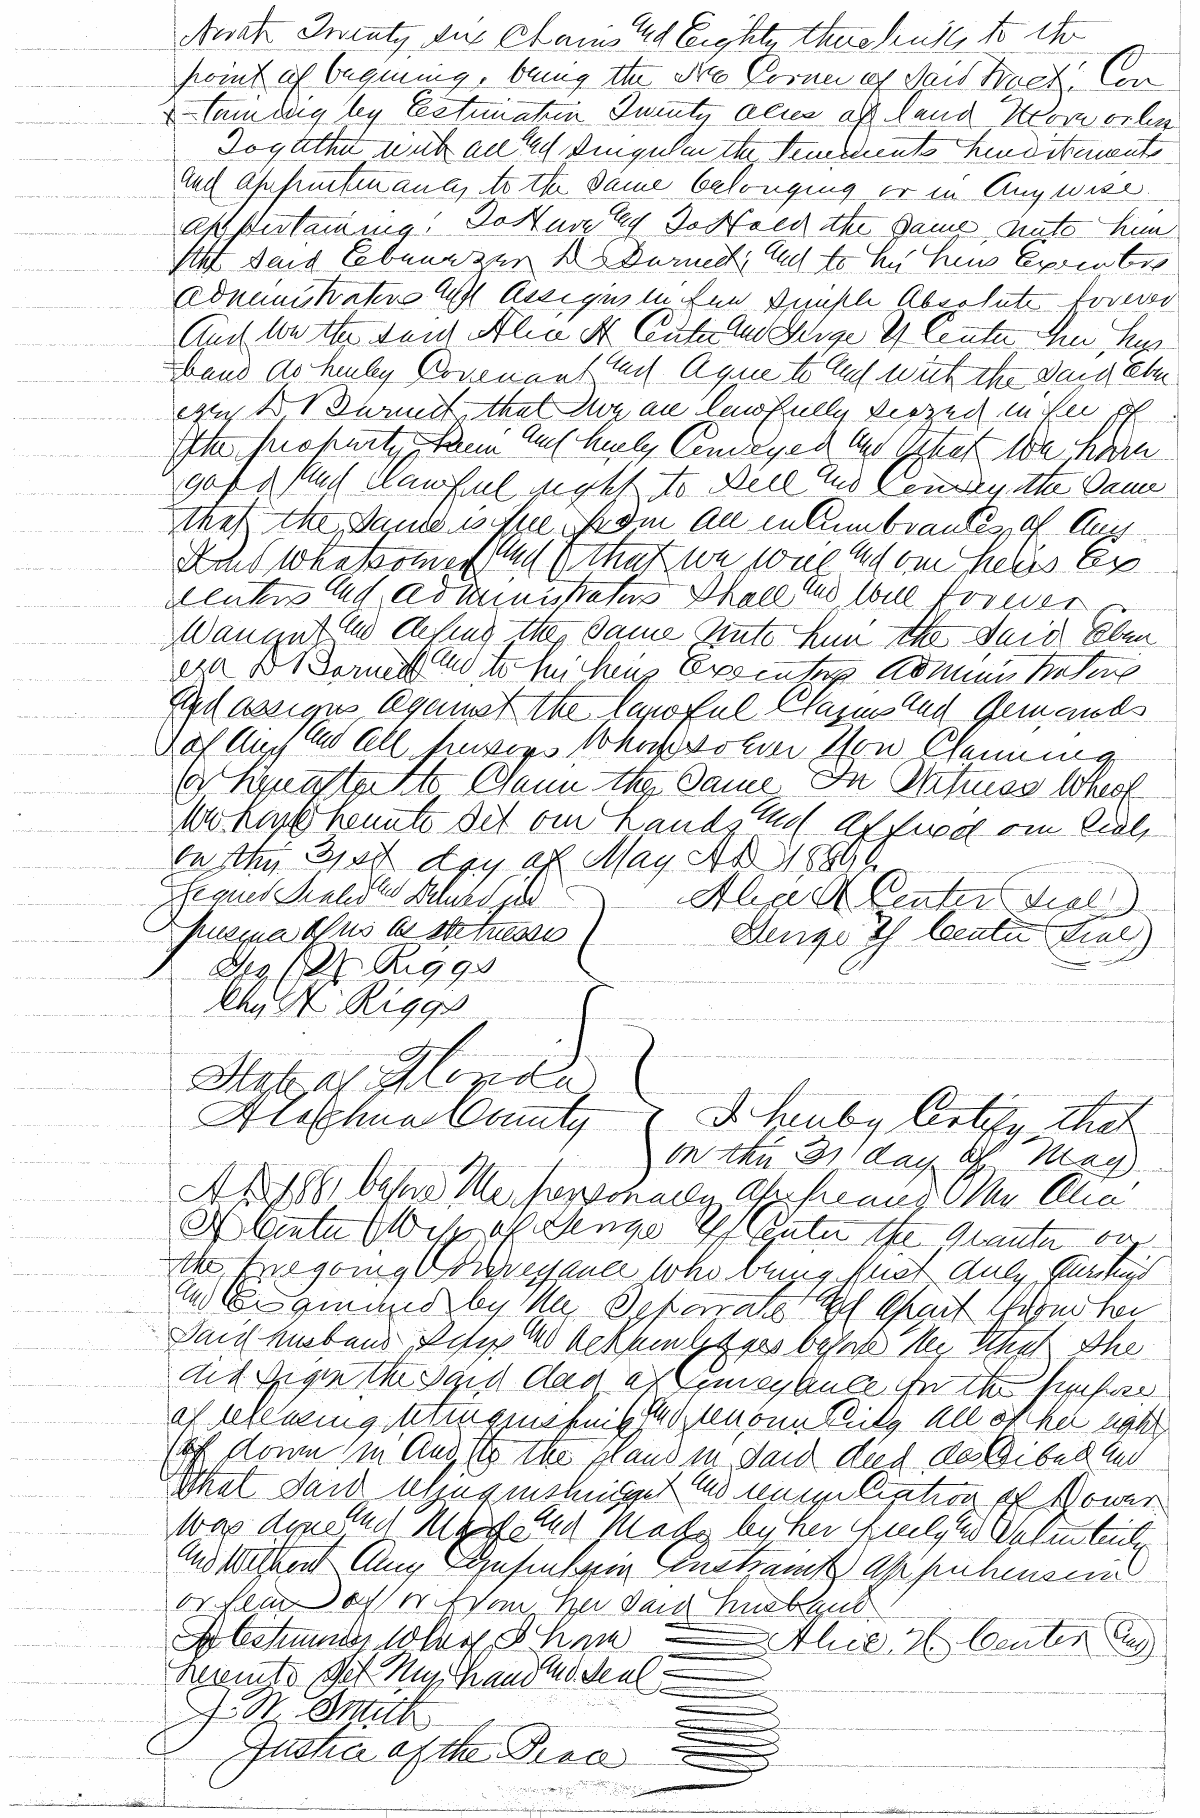 North Twenty six Chains and Eighty three links to the
point of begining, being the NE Corner of Said tract; Con
-taining by Estimation Twenty acres of land More or less
Together with all and Singular the tenements hereditaments
and appurtenances to the Same belonging or in Any wise
appertaining: To Have and To Hold the Same, unto him
the Said Ebenezer D Burned; and to his heirs Executors
administrators and Assigns in fee Simple Absolute forever
And We the said Alice H Center and George Y Center her hus
band do hereby Covenant and Agree to and with the Said Eben
ezer D Burned, that we are lawfully seized in fee of
the property herein and hereby Conveyed and that We have
good and lawful right to Sell and Convey the Same
that the Same is free from all inCumbrances of Any
Kind whatsoever and that we will and our heirs Ex
ecutors and administrators Shall and Will forever
Warrant and defend the Same unto him the Said Eben
ezer D Burned and to his heirs Executors Administrators
and assigns against the lawful Claims and demands
of Any and all persons Whomsoever Now Claiming
or hereafter to Claim the Same In Witness Whereof
We have hereunto Set our hands and affixed our Seals
on this 31st day of May AD
Signed Sealed and Delivered in Alice H Center (Seal)
presence of us as Witnesses George Y Center (Seal)
Geo W Riggs
Chs H Riggs
State of Florida
Alachua County I hereby Certify that
on this 31 day of May
AD 1881 before Me personally appeared Mrs Alice
H Center Wife of George Y Center the grantor on
the foregoing Conveyance who being first duly
and Examined by Me Separate and apart from her
said husband Says and acknowledges before Me that She
did sign the Said deed of Conveyance for the purpose
of releasing relinquishing and renounCing all of her right
of dower in and to the land in Said deed desCribed and
that Said relinquishment and renunCiation of Dower
was done and Made and Made by her freely and Voluntarily
and Without Any Compulsion Constraint apprehension
or fear of or from her Said husband
In testimony Whereof I have Alice H Center
hereunto Set My hand and Seal
J. W. Smith
Justice of the Peace